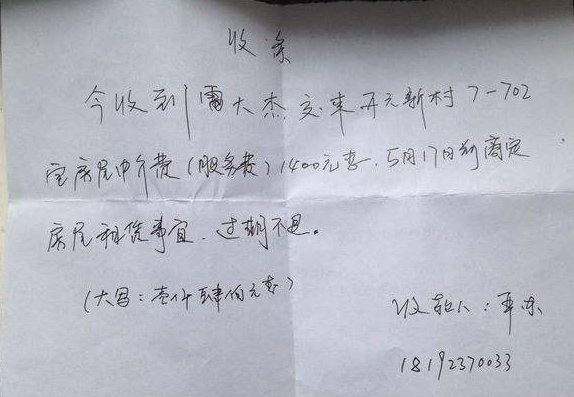 收条
今收到雷大杰交来开元新村7-702
室房屋中介费(服务费)1400元整.5月17日到商定
房屋租赁事宜.过期不退。
(大写:壹仟肆佰元整)
收款人:
18192370033